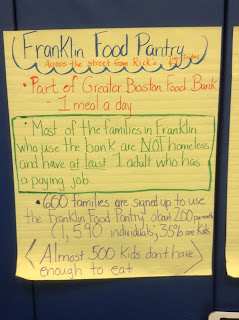 Franklin Food Pantry
Across the street from Rick's
• Part of Greater Boston Food Bank
- 1 meal a day
• Most of the families in Franklin
who use the bank are NOT homeless
and have at least 1 adult who has
a paying job
• 600 families are signed up to use
the Franklin Food Pantry about 200 per month
(1,590 individuals; 35% are Kids
Almost 500 Kids don't have
enough to eat